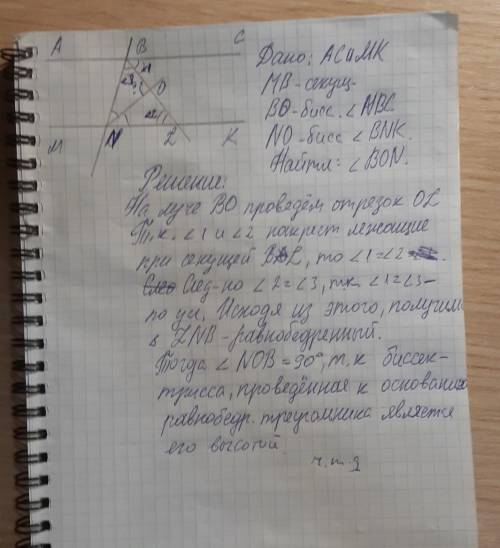 A B C
Дано: AC || MK
∠3 ∠1 O
MB - секущ.
BO - бисс. ∠MBC
∠2
M N L K
NO - бисс ∠BNK.
Найти: ∠BON.
Решение:
На луче BO проведём отрезок OL
Т.к. ∠1 и ∠2 накрест лежащие
при секущей BL, то ∠1=∠2
След-но ∠2=∠3, т.к ∠1=∠3-
по усл. Исходя из этого, получим
LNB - равнобедренный.
Тогда ∠NOB=90°, т.к биссек-
трисса, проведённая к основанию
равнобедр. треугольника является
его высотой.
ч.т.д